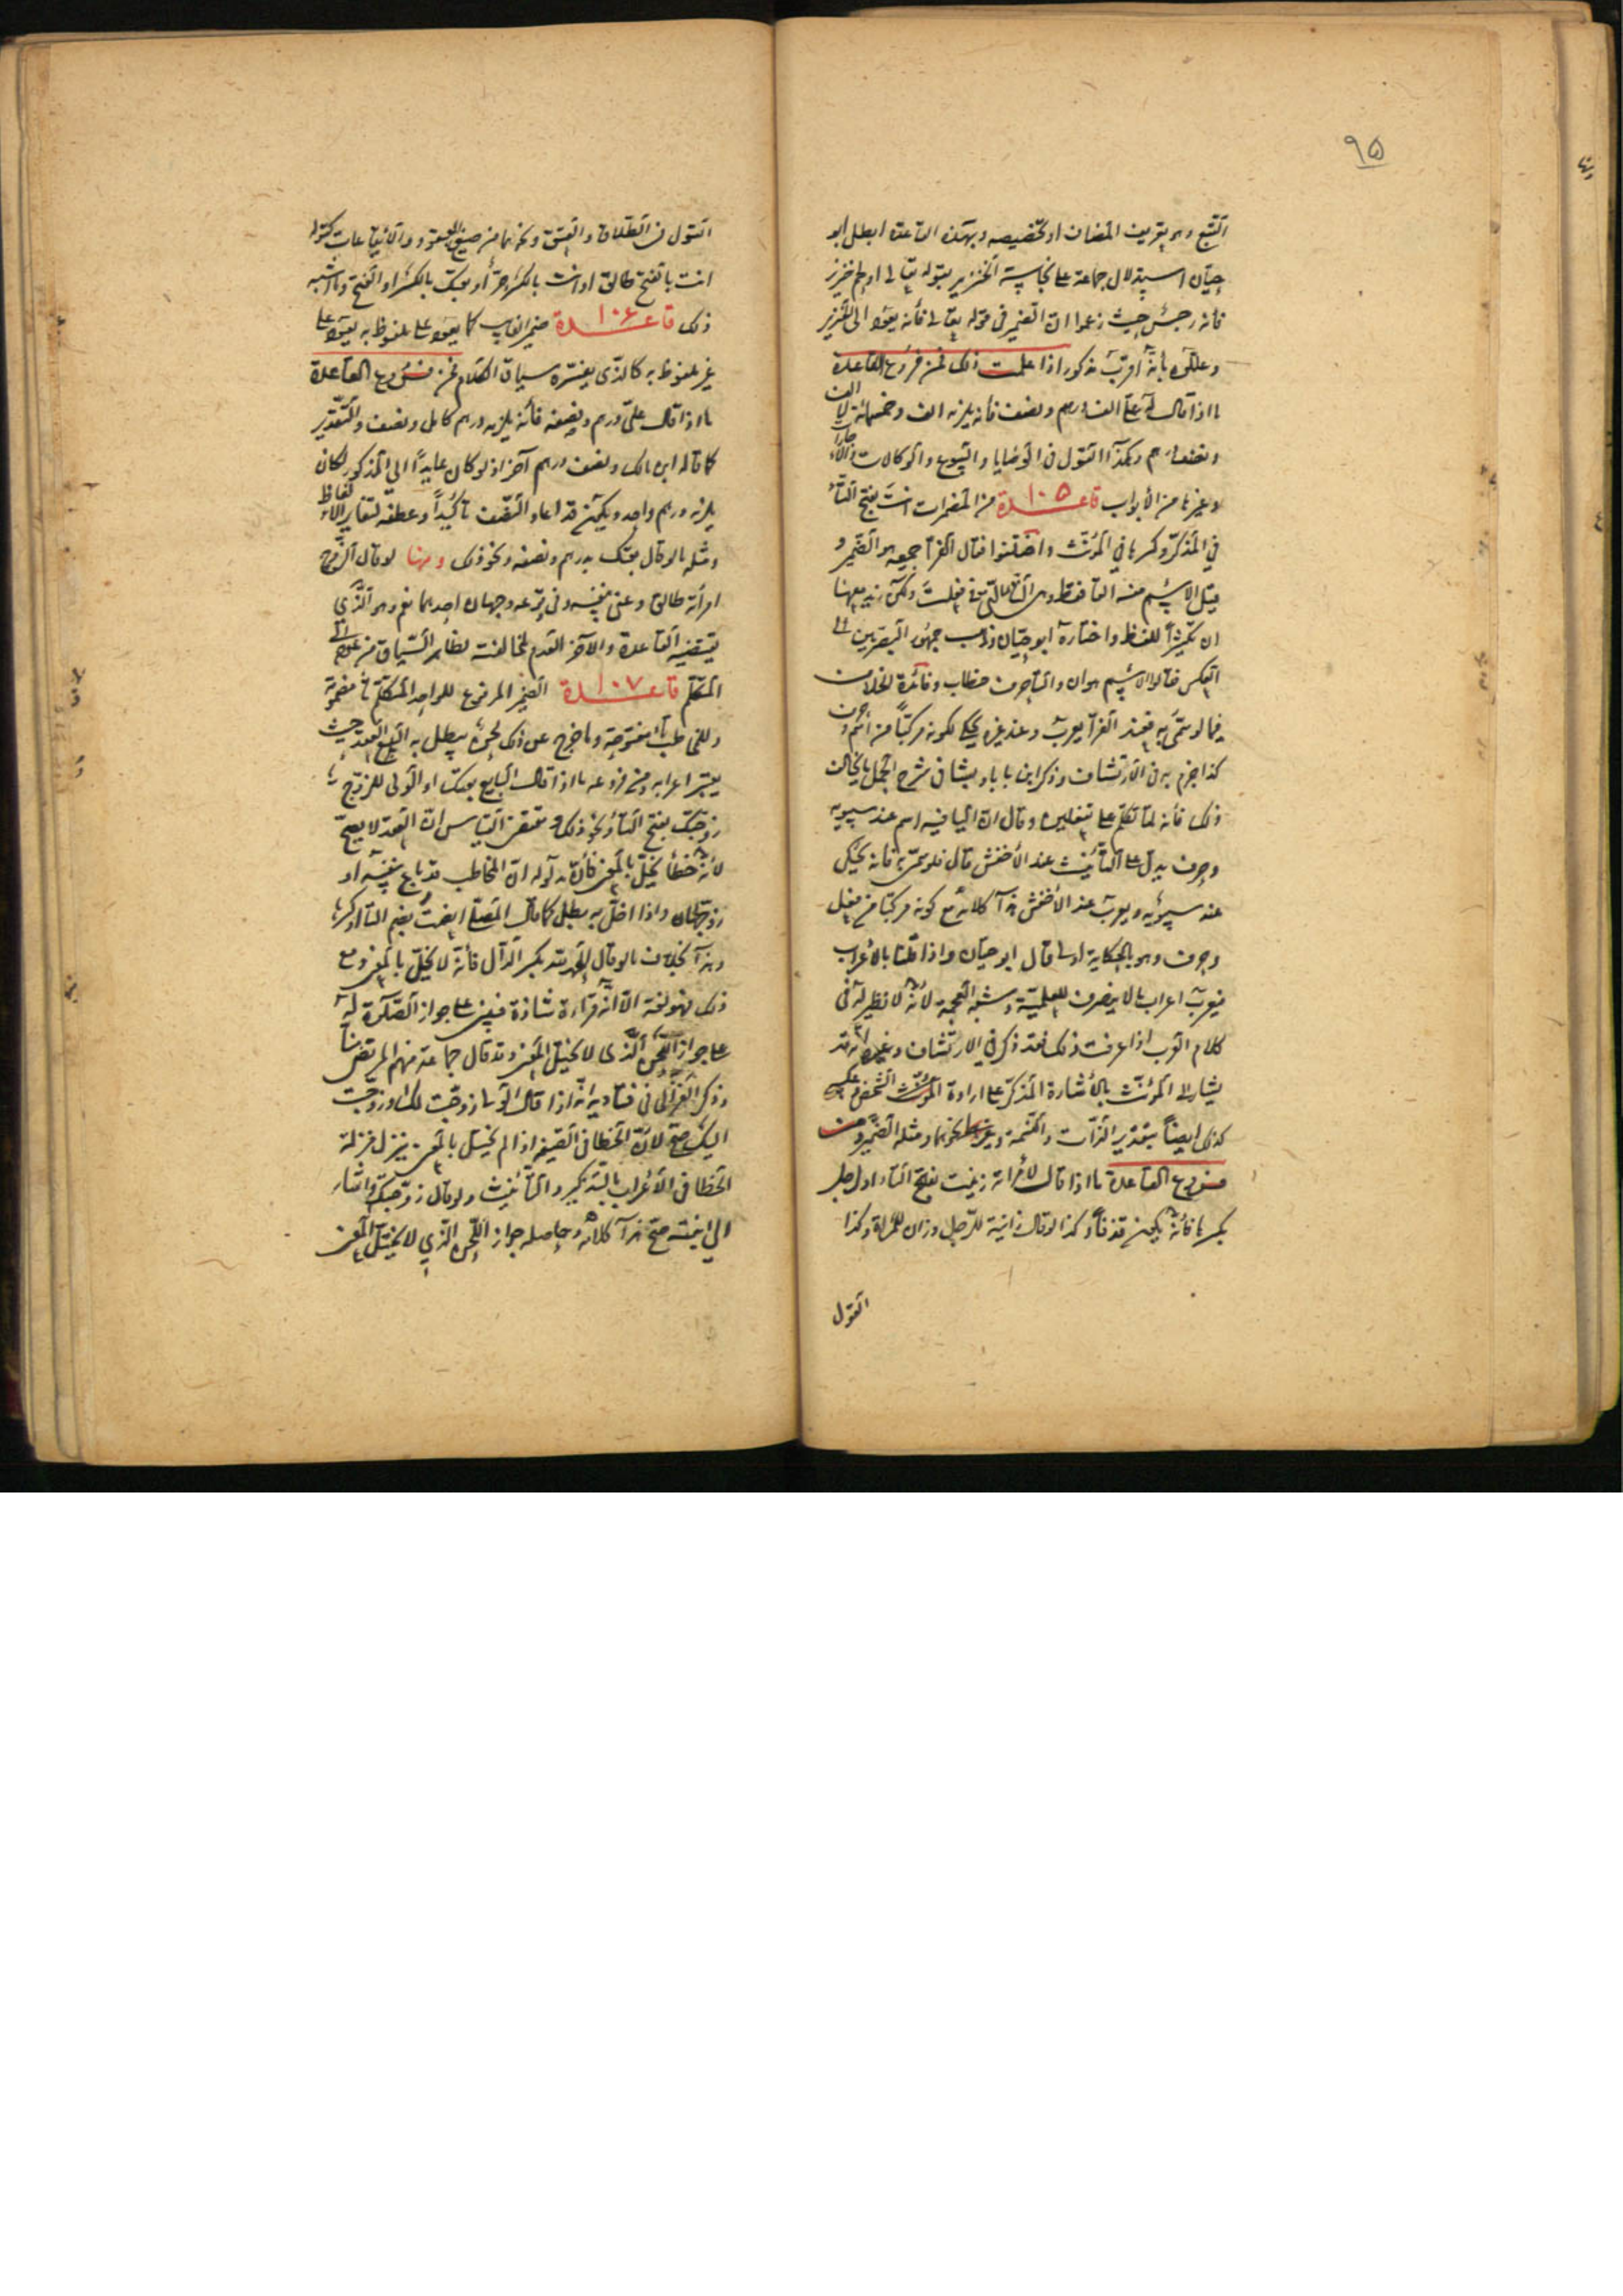 ٩۵
التتبع وهو بتعريف المضاف او تخصيصه وبهذه القاعدة ابطل ابو
حيان استدلال جماعة على نجاسة الخنزير بقوله تعالى او لحم خنزير
فانه رجس حيث زعموا ان الضمير في قوله تعالى فانه يعود الى الخنزير
وعللوه بانه اقرب مذكور اذا علمت ذلك فمن فروع القاعدة
ما اذا قال له علي الف درهم ونصف فانه يلزمه الف وخمسمائة لا الف
ونصف درهم وهكذا القول في الوصايا والبيوع والوكالات والاجارات
وغيرها من الابواب قاعدة ١٠۵ من المضمرات انت بفتح التاء
في المذكر وكسرها في المؤنث واختلفوا فقال الفراء جميعه هو الضمير و
قيل الاسم منه التا فقط وهي التاء التي في فعلت ولكن زيد معها
ان تكثيرا للفظ واختاره ابو حيان وذهب جمهور البصريين الى
العكس فقالوا الاسم هو ان والتاء حرف خطاب وفائدة الخلاف
فيما لو سمي به فعند الفراء يعرب وعند غيره يحكى لكونه مركبا من اسم وحرف
كذا جزم به في الارتشاف وذكر ابن بابادبشا في شرح الجمل ما يخالف
ذلك فانه لما تكلم على تفعلين وقال ان اليا فيه اسم عند سيبويه
وحرف يدل على التأنيث عند الاخفش قال فلو سمي به فانه يحكى
عند سيبويه ويعرب عند الاخفش هذا كلامه مع كونه مركبا من فعل
وحرف وهو بالحكاية اولى قال ابو حيان واذا قلنا بالاعراب
فيعرب اعراب ما لا ينصرف للعلمية وشبه العجمة لأنه لا نظير له في
كلام العرب اذا عرفت ذلك فقد ذكر في الارتشاف وغيره انه قد
يشار الى المؤنث بالاشارة المذكر على ارادة الشخص وعكس
كذلك ايضا بتقدير الذات والنسمة ونحوهما ومثله الضمير ومن
فروع القاعدة ما اذا قال لامرأته زنيت بفتح التاء او لرجل
بكسرها فانه يكون قذفا وكذا لو قال زانية للرجل وزان للمرأة وكذا
القول
القول في الطلاق والعتق ونحوهما من صيغ العقود والايقاعات كقوله
انت بالفتح طالق او انت بالكسر حر أو بعتك بالكسر او الفتح وما اشبه
ذلك قاعدة ١٠۶ ضمير الغايب كما يعود على ملفوظ به يعود على
غير ملفوظ به كالذي يفسره سياق الكلام فمن فروع القاعدة
ما اذا قال علي درهم ونصفه فانه يلزمه درهم كامل ونصف والتقدير
كما قاله ابن مالك ونصف درهم آخر اذ لو كان عايدا الى المذكور لكان
يلزمه درهم واحد ويكون قد اعاد النصف تأكيدا وعطفه لتغاير الالفاظ
ومثله ما لو قال بعتك بدرهم ونصفه ونحو ذلك ومنها لو قال الزوج
امرأته طالق وعنى نفسه ففي وقوعه وجهان احدهما نعم وهو الذي
يقتضيه القاعدة والآخر العدم لمخالفته لظاهر السياق من عوده الى
المتكلم قاعدة ١٠٧ الضمير المرفوع للواحد المتكلم تاء مضمومة
وللمخاطب تاء مفتوحة وما خرج عن ذلك لحن يبطل به العقد حيث
يعتبر اعرابه ومن فروعه ما اذا قال البايع بعتك او الولي للزوج
زوجتك بفتح التاء ونحو ذلك ومقتضى القياس ان العقد لا يصح
لانه خطأ يخل بالمعنى فان مدلوله ان المخاطب قد باع نفسه او
زوجها واذا اخل به بطل كما قال المصلي انعمت بضم التاء او كسرها
وهذا بخلاف ما لو قال الحمد لله بكسر الدال فانه لا يخل بالمعنى ومع
ذلك فهو لغة الا انه قراءة شاذة فيبنى على جواز الصلاة به
على جواز اللحن الذي لا يخل بالمعنى وقد قال جماعة منهم المرتضى منا
وذكر الغزالي في فتاويه انه اذا قال الولي زوجت لك او زوجت
اليك صح لان الخطأ في الصيغة اذا لم يخل بالمعنى ينزل منزلة
الخطا في الاعراب بالتذكير والتأنيث ولو قال زوجتكه واشار
الى ابنته صح هذا كلامه وحاصله جواز اللحن الذي لا يخل بالمعنى